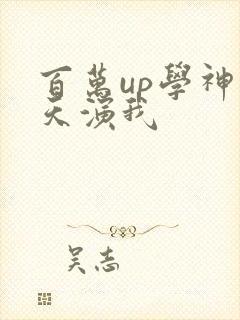 百萬up學神
天演我
吴志